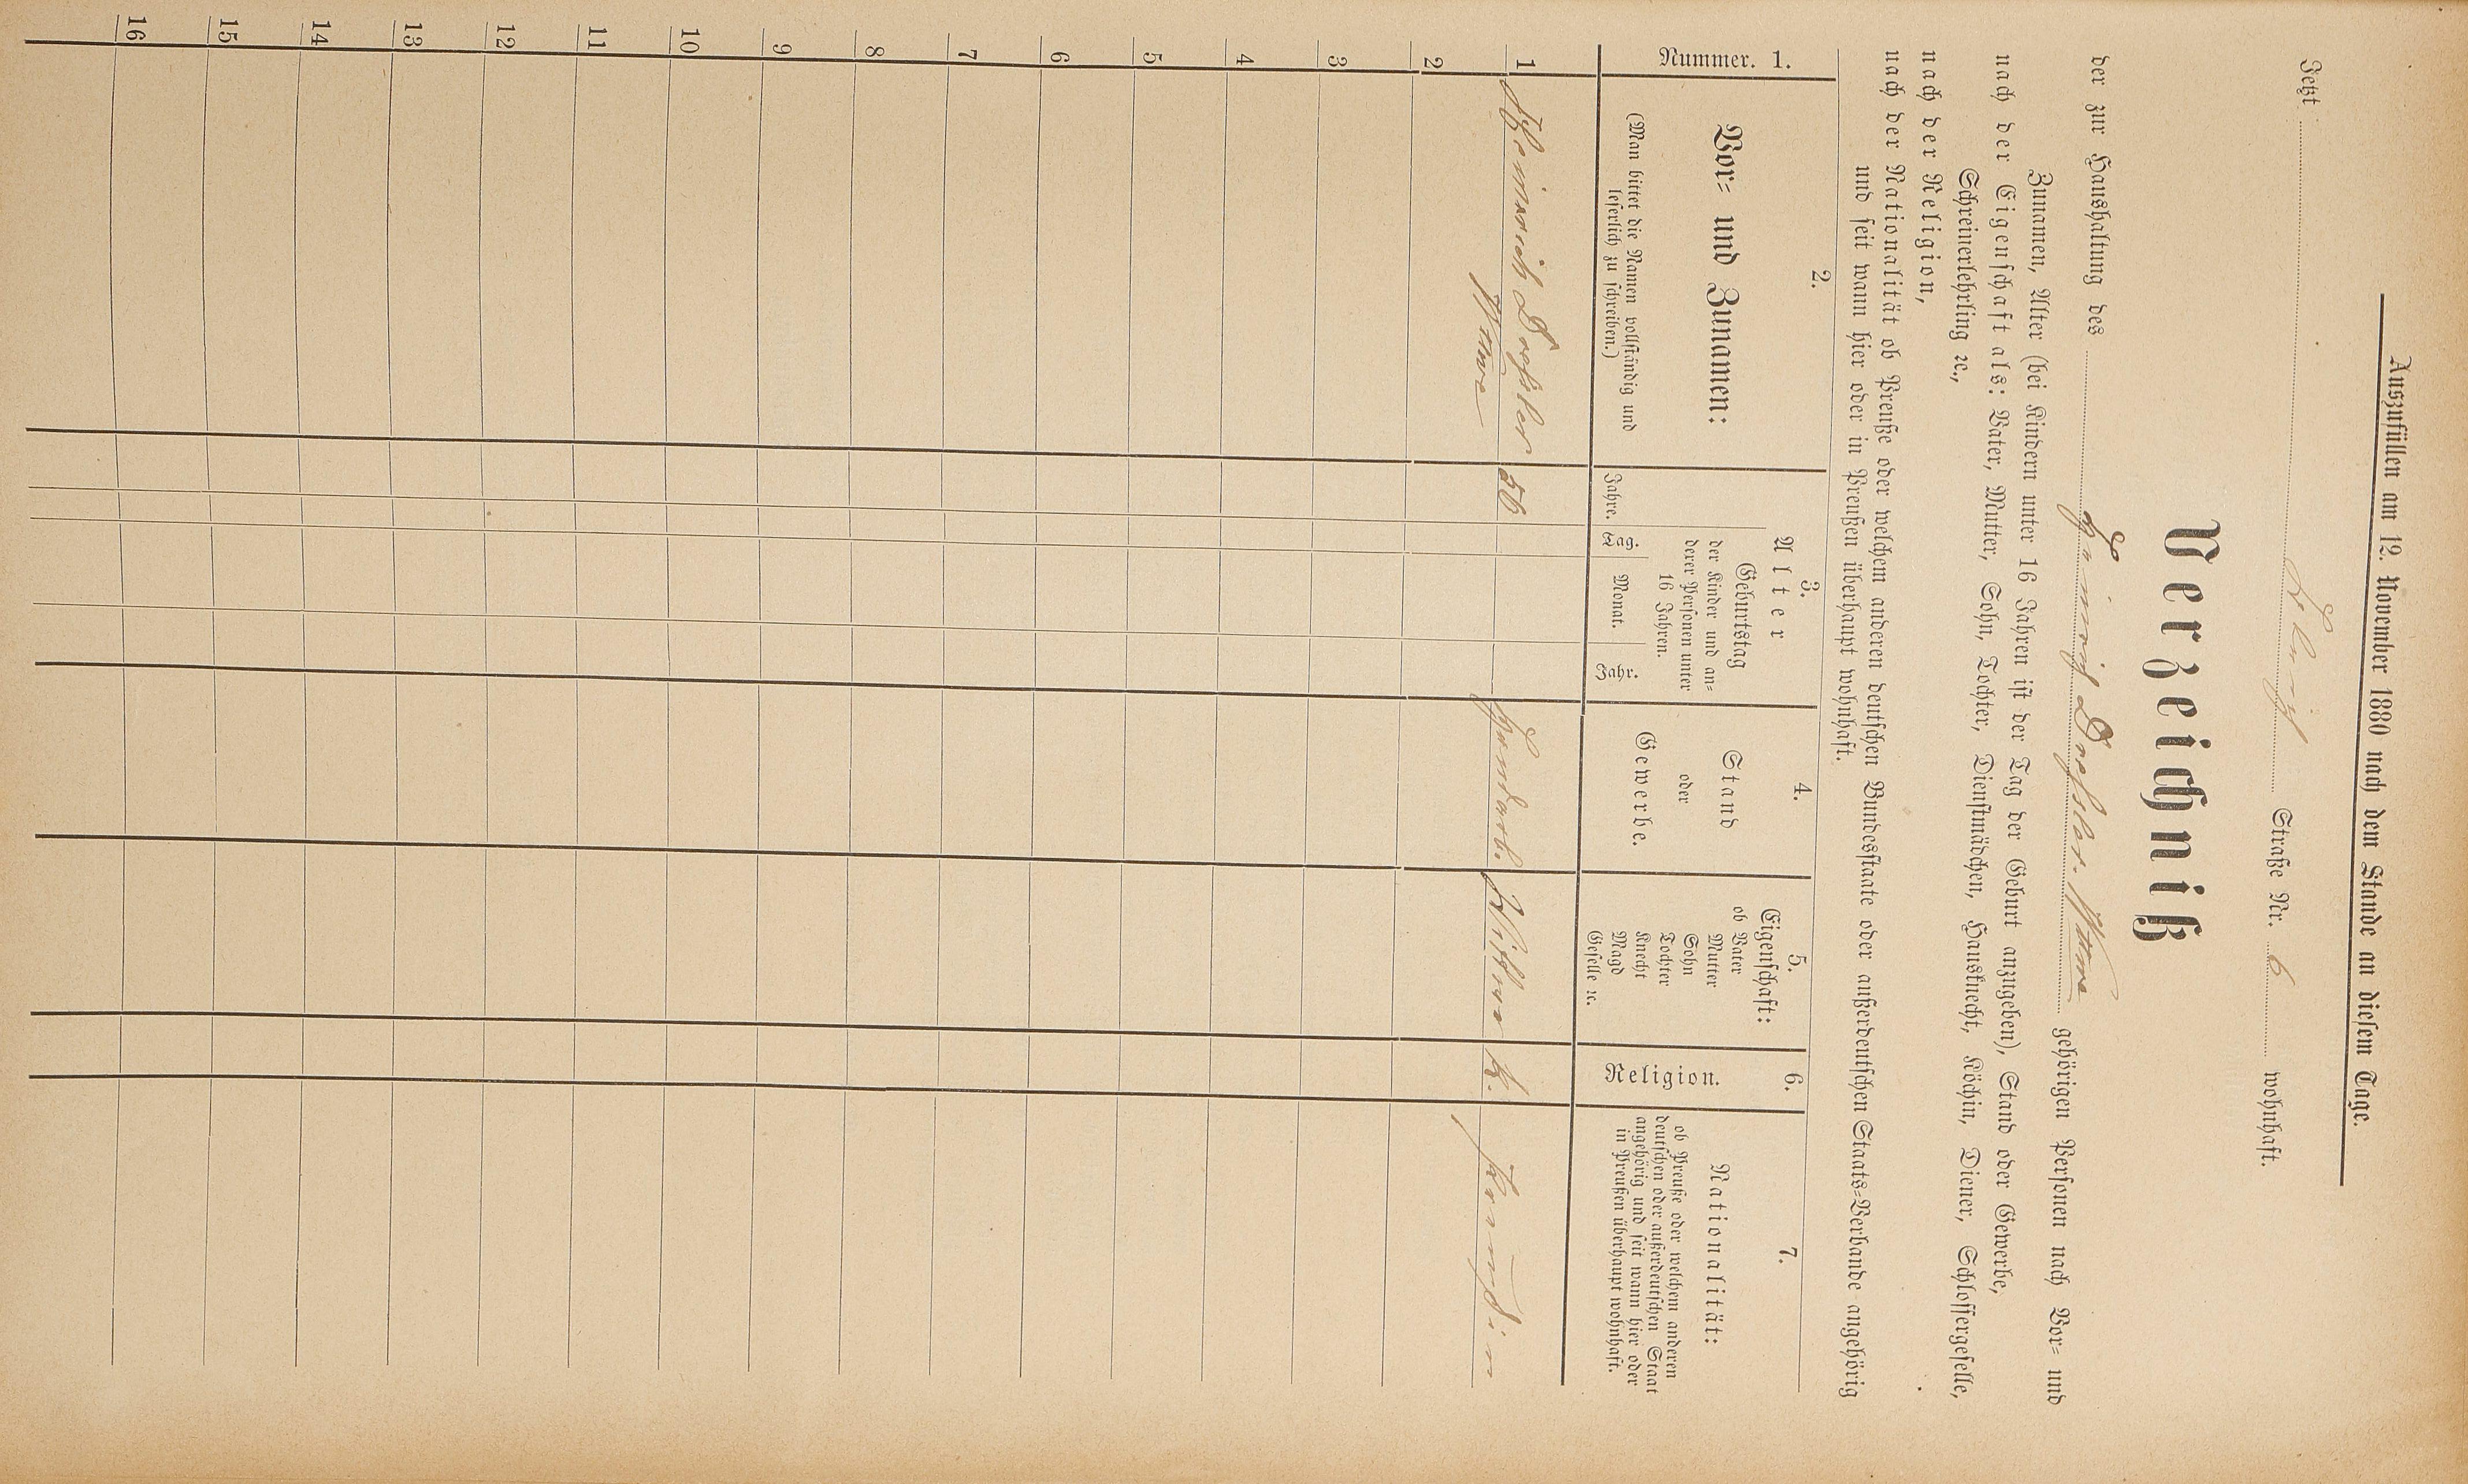 Auszufüllen am 12. November 1880 nach dem Stande an diesem Tage.
Jetzt Straße Nr. 6 wohnhaft.
Verzeichniß
der zur Haushaltung des Heinrich Dreßler Wwe gehörigen Personen nach Vor- und
Zunamen, Alter (bei Kindern unter 16 Jahren ist der Tag der Geburt anzugeben), Stand oder Gewerbe,
nach der Eigenschaft als: Vater, Mutter, Sohn, Tochter, Dienstmädchen, Hausknecht, Köchin, Diener, Schlossergeselle,
Schreinerlehrling ꝛc.,
nach der Religion,
nach der Nationalität ob Preuße oder welchem anderen deutschen Bundesstaate oder außerdeutschen Staats-Verbande angehörig
und seit wann hier oder in Preußen überhaupt wohnhaft.
1.
Nummer.
2.
Vor- und Zunamen:
(Man bittet die Namen vollständig und
leserlich zu schreiben.)
3.
Alter
Geburtstag
der Kinder und an-
derer Personen unter
16 Jahren.
Jahre.
Tag.
Monat.
Jahr.
4.
Stand
oder
Gewerbe.
5.
Eigenschaft:
ob Vater
Mutter
Sohn
Tochter
Knecht
Magd
Geselle ꝛc.
6.
Religion.
7.
Nationalität:
ob Preuße oder welchem anderen
deutschen oder außerdeutschen Staat
angehörig und seit wann hier oder
in Preußen überhaupt wohnhaft.
1 Heinrich Dreßler 56 Handarb. Wittwe K. Preußin
Wwe
2
3
4
5
6
7
8
9
10
11
12
13
14
15
16